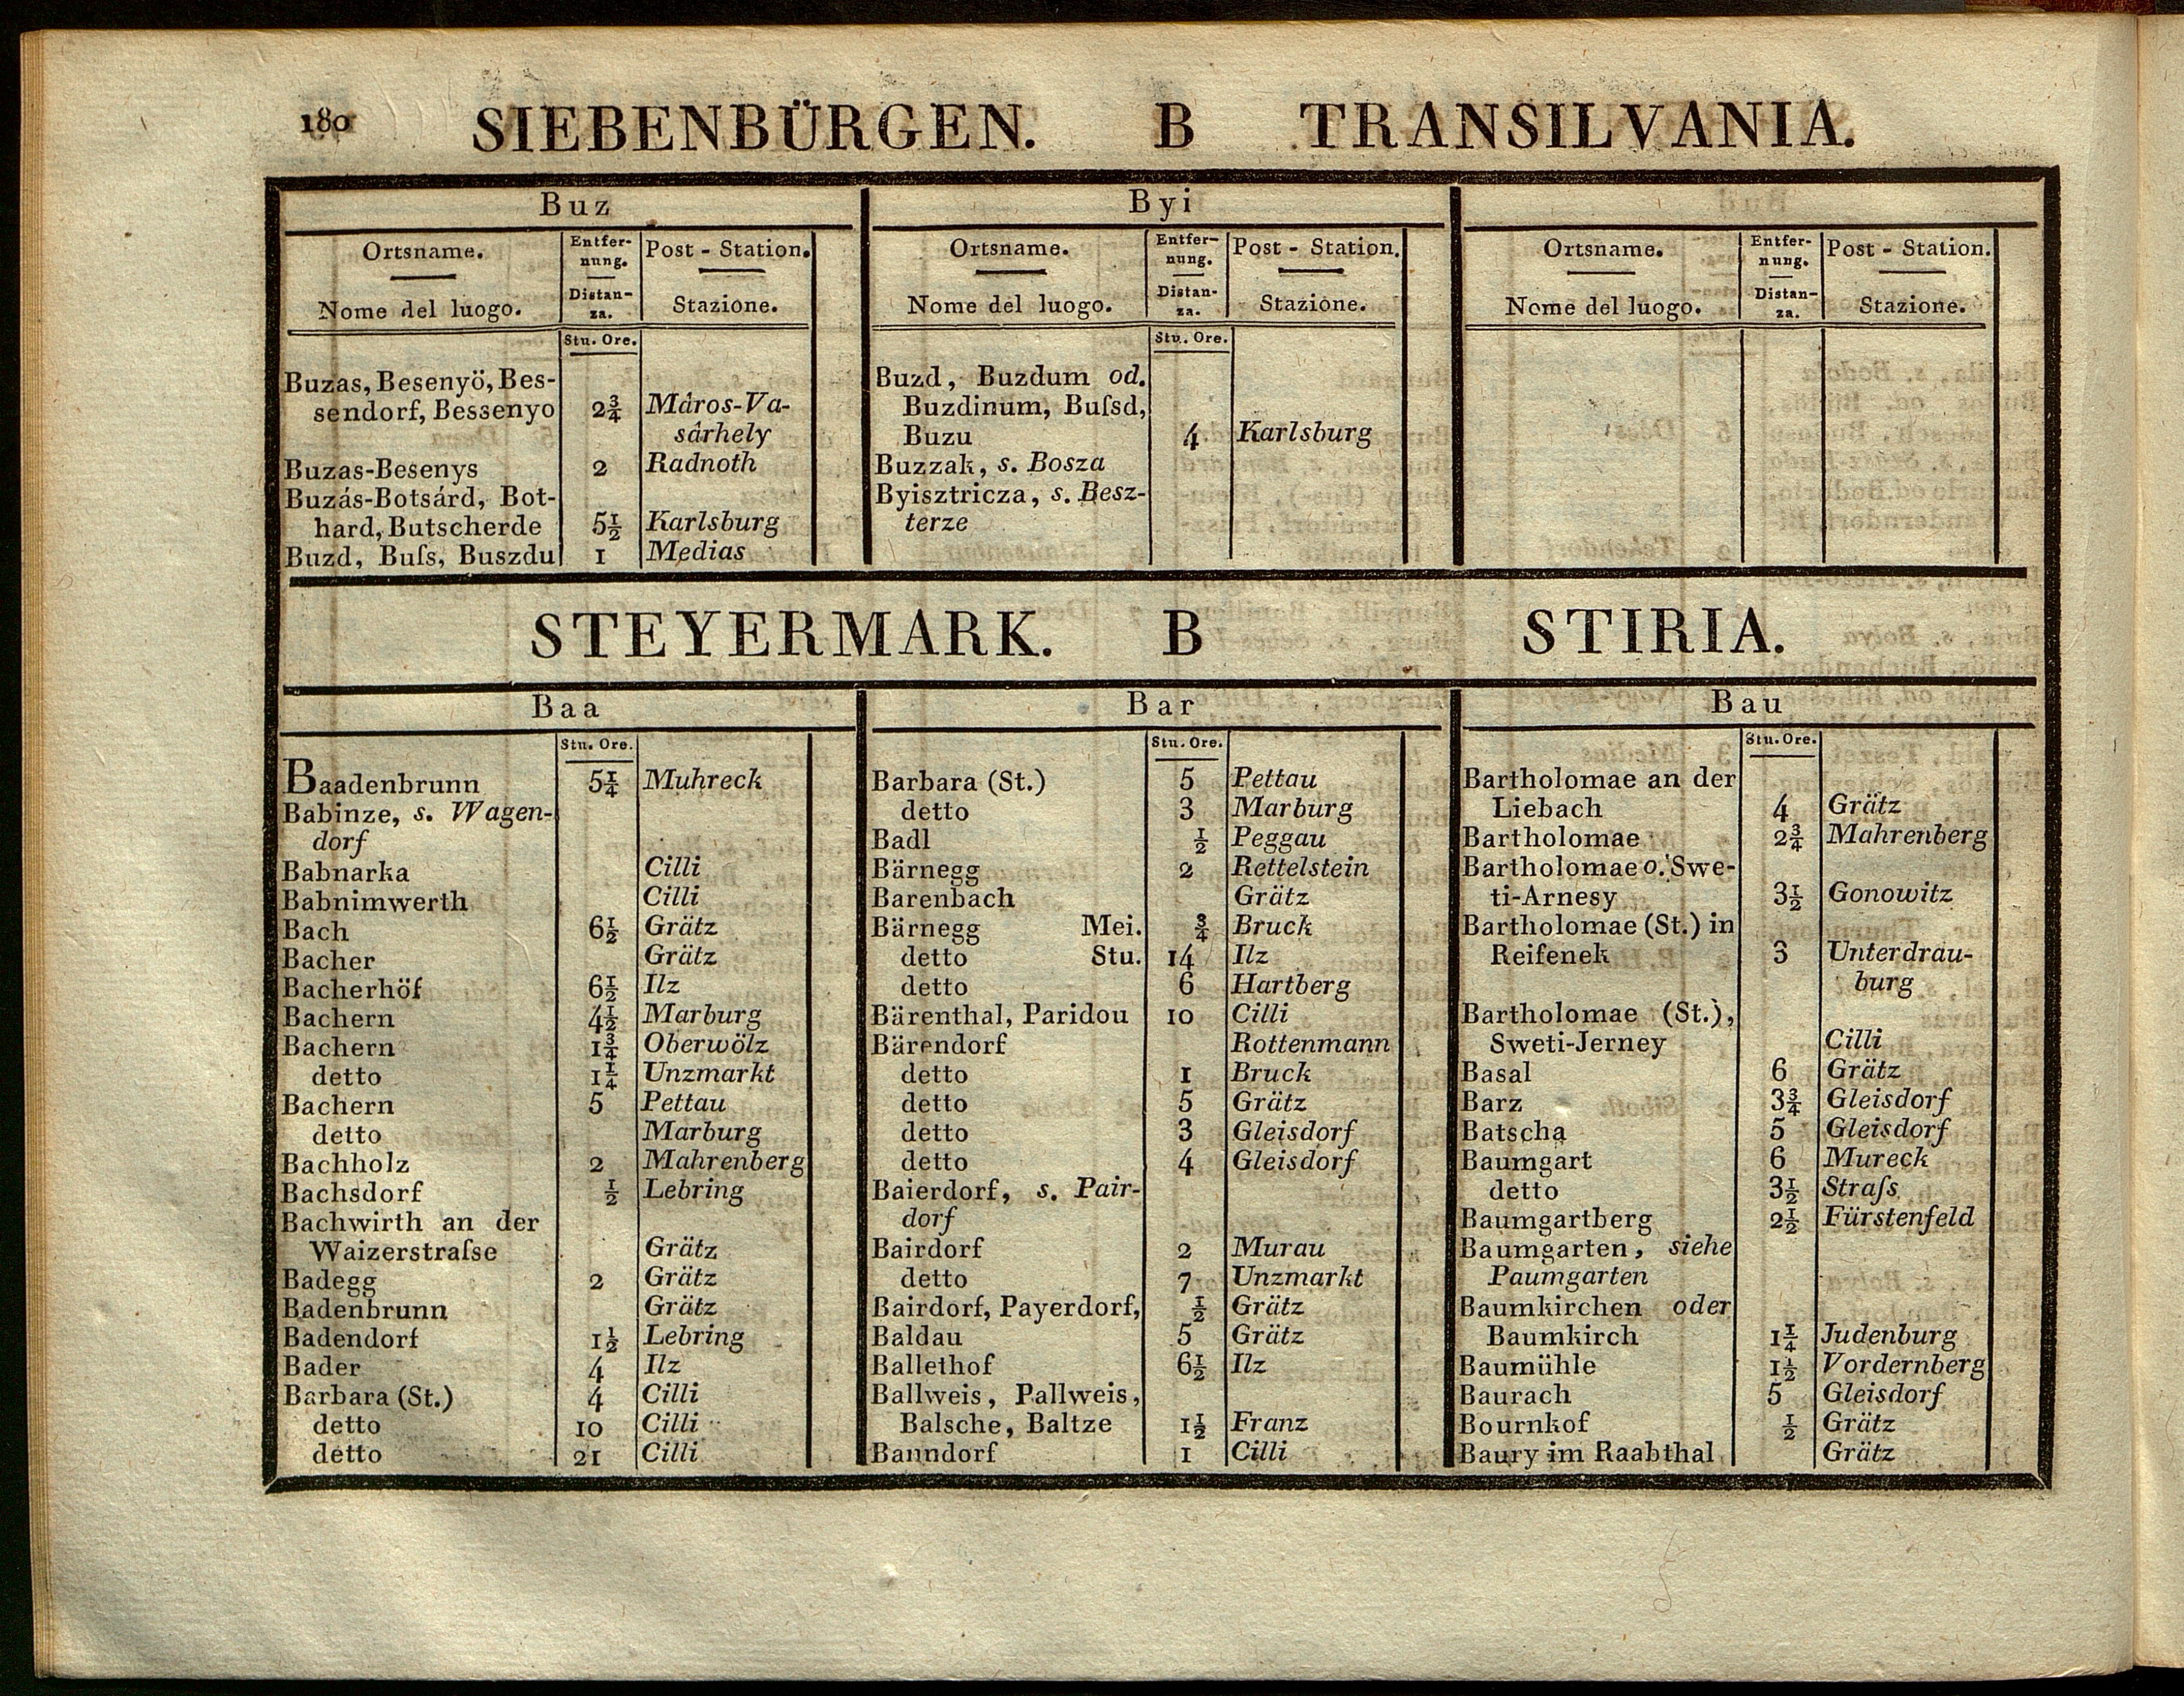 180 SIEBENBÜRGEN. B TRANSILVANIA.
Buz
Ortsname. Entfer- Post - Station.
nung.
Nome del luogo. Distan- Stazione.
za.
Stu. Ore.
Buzas, Besenyö, Bes-
sendorf, Bessenyo 2¾ Máros-Va-
sárhely
Buzas-Besenys 2 Radnoth
Buzás-Botsárd, Bot-
hard, Butscherde 5½ Karlsburg
Buzd, Buſs, Buszdu 1 Medias
Byi
Ortsname. Entfer- Post - Station.
nung.
Nome del luogo. Distan- Stazione.
za.
Stu. Ore.
Buzd, Buzdum od.
Buzdinum, Buſsd,
Buzu 4 Karlsburg
Buzzak, s. Bosza
Byisztricza, s. Besz-
terze
Ortsname. Entfer- Post - Station.
nung.
Nome del luogo. Distan- Stazione.
za.
STEYERMARK. B STIRIA.
Baa
Stu. Ore.
Baadenbrunn 5¼ Muhreck
Babinze, s. Wagen-
dorf
Babnarka Cilli
Babnimwerth Cilli
Bach 6½ Grätz
Bacher Grätz
Bacherhöf 6½ Ilz
Bachern 4½ Marburg
Bachern 1¾ Oberwölz
detto 1¼ Unzmarkt
Bachern 5 Pettau
detto Marburg
Bachholz 2 Mahrenberg
Bachsdorf ½ Lebring
Bachwirth an der
Waizerstraſse Grätz
Badegg 2 Grätz
Badenbrunn Grätz
Badendorf 1½ Lebring
Bader 4 Ilz
Barbara (St.) 4 Cilli
detto 10 Cilli
detto 21 Cilli
Bar
Stu. Ore.
Barbara (St.) 5 Pettau
detto 3 Marburg
Badl ½ Peggau
Bärnegg 2 Rettelstein
Barenbach Grätz
Bärnegg Mei. ¾ Bruck
detto Stu. 14 Ilz
detto 6 Hartberg
Bärenthal, Paridou 10 Cilli
Bärendorf Rottenmann
detto 1 Bruck
detto 5 Grätz
detto 3 Gleisdorf
detto 4 Gleisdorf
Baierdorf, s. Pair-
dorf
Bairdorf 2 Murau
detto 7 Unzmarkt
Bairdorf, Payerdorf, ½ Grätz
Baldau 5 Grätz
Ballethof 6½ Ilz
Ballweis, Pallweis,
Balsche, Baltze 1½ Franz
Banndorf 1 Cilli
Bau
Stu. Ore.
Bartholomae an der
Liebach 4 Grätz
Bartholomae 2¾ Mahrenberg
Bartholomae o. Swe-
ti-Arnesy 3½ Gonowitz
Bartholomae (St.) in
Reifenek 3 Unterdrau-
burg
Bartholomae (St.),
Sweti-Jerney Cilli
Basal 6 Grätz
Barz 3¾ Gleisdorf
Batscha 5 Gleisdorf
Baumgart 6 Mureck
detto 3½ Straſs
Baumgartberg 2½ Fürstenfeld
Baumgarten, siehe
Paumgarten
Baumkirchen oder
Baumkirch 1¼ Judenburg
Baumühle 1½ Vordernberg
Baurach 5 Gleisdorf
Bournkof ½ Grätz
Baury im Raabthal Grätz